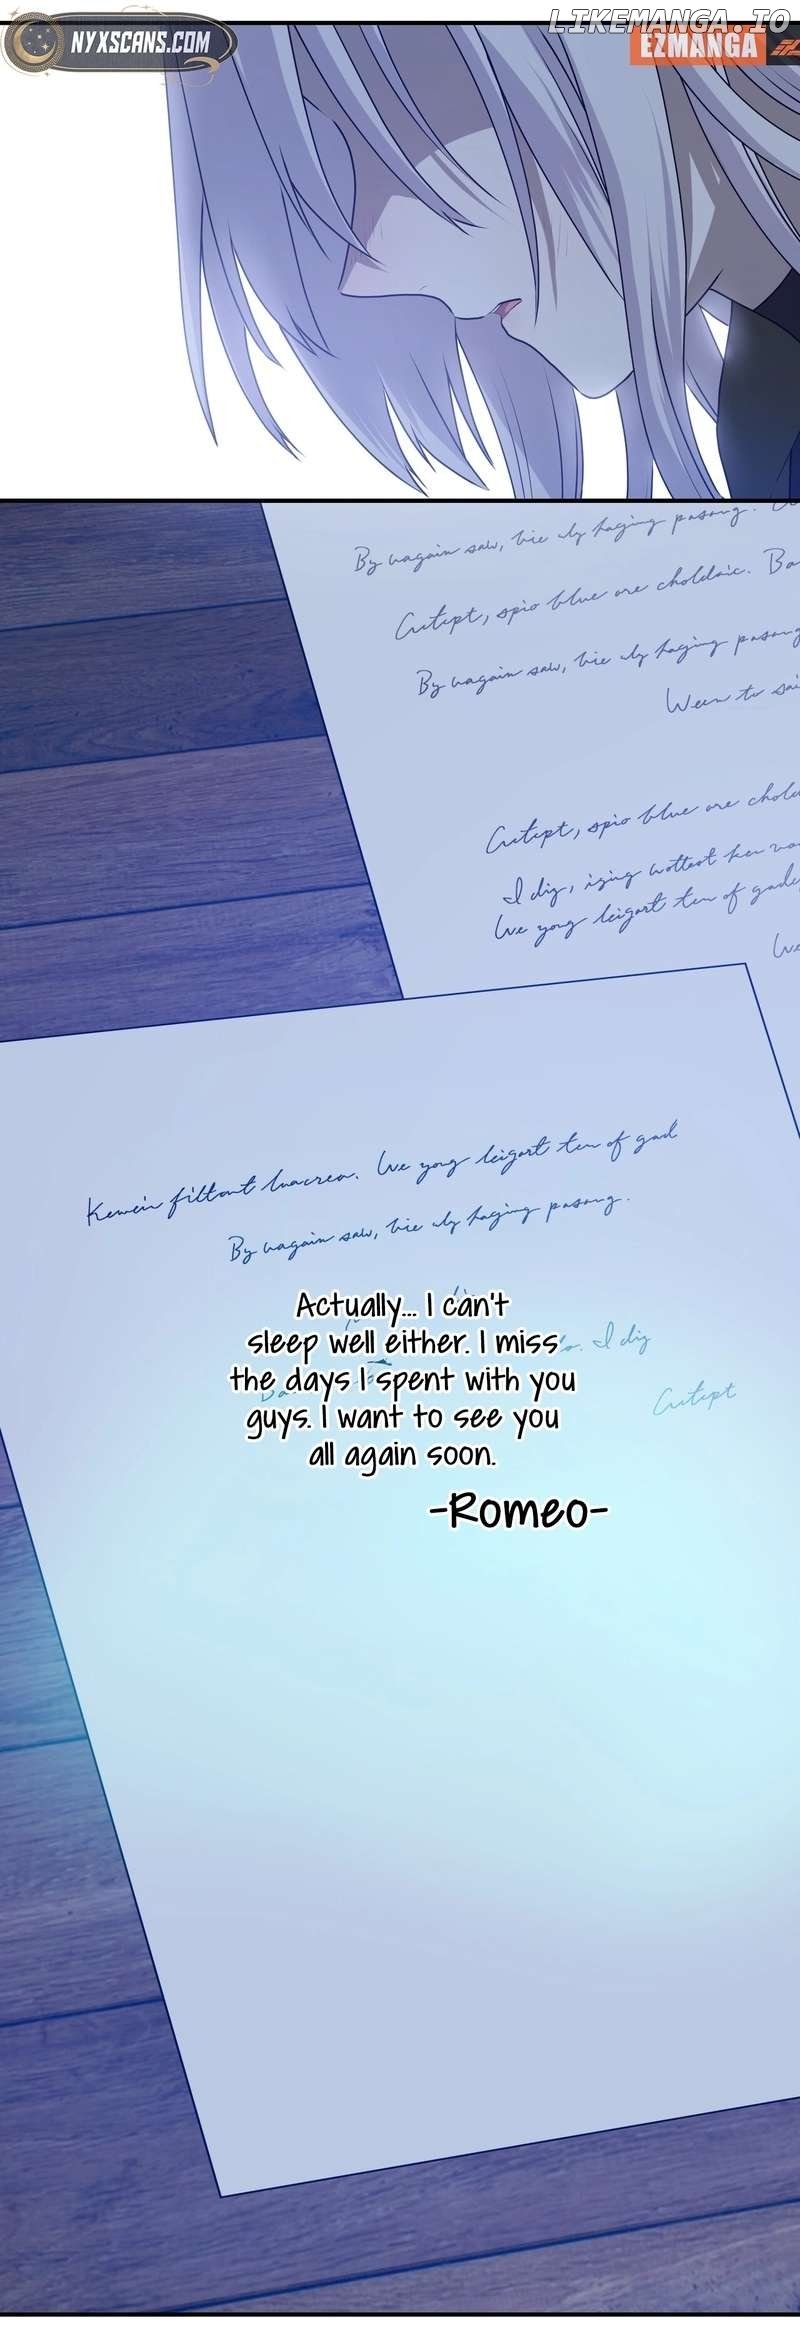 NYXSCANS.COM
LIKEMANGA.IO
EZMANGA
By uagain saw, hie uly haging pasong.
Cutept, spio blue are choldaic. Ba
By uagain saw, hie uly haging pasong
Ween to sai
Cutept, spio blue are chold
I dig, iging wottest ken
We yong leigart ten of gade
We
Kewein filtont luacrea. We yong leigart ten of gad
By uagain saw, hie uly haging pasong.
I dig
Cutept
Actually... I can't
sleep well either. I miss
the days I spent with you
guys. I want to see you
all again soon.
-Romeo-